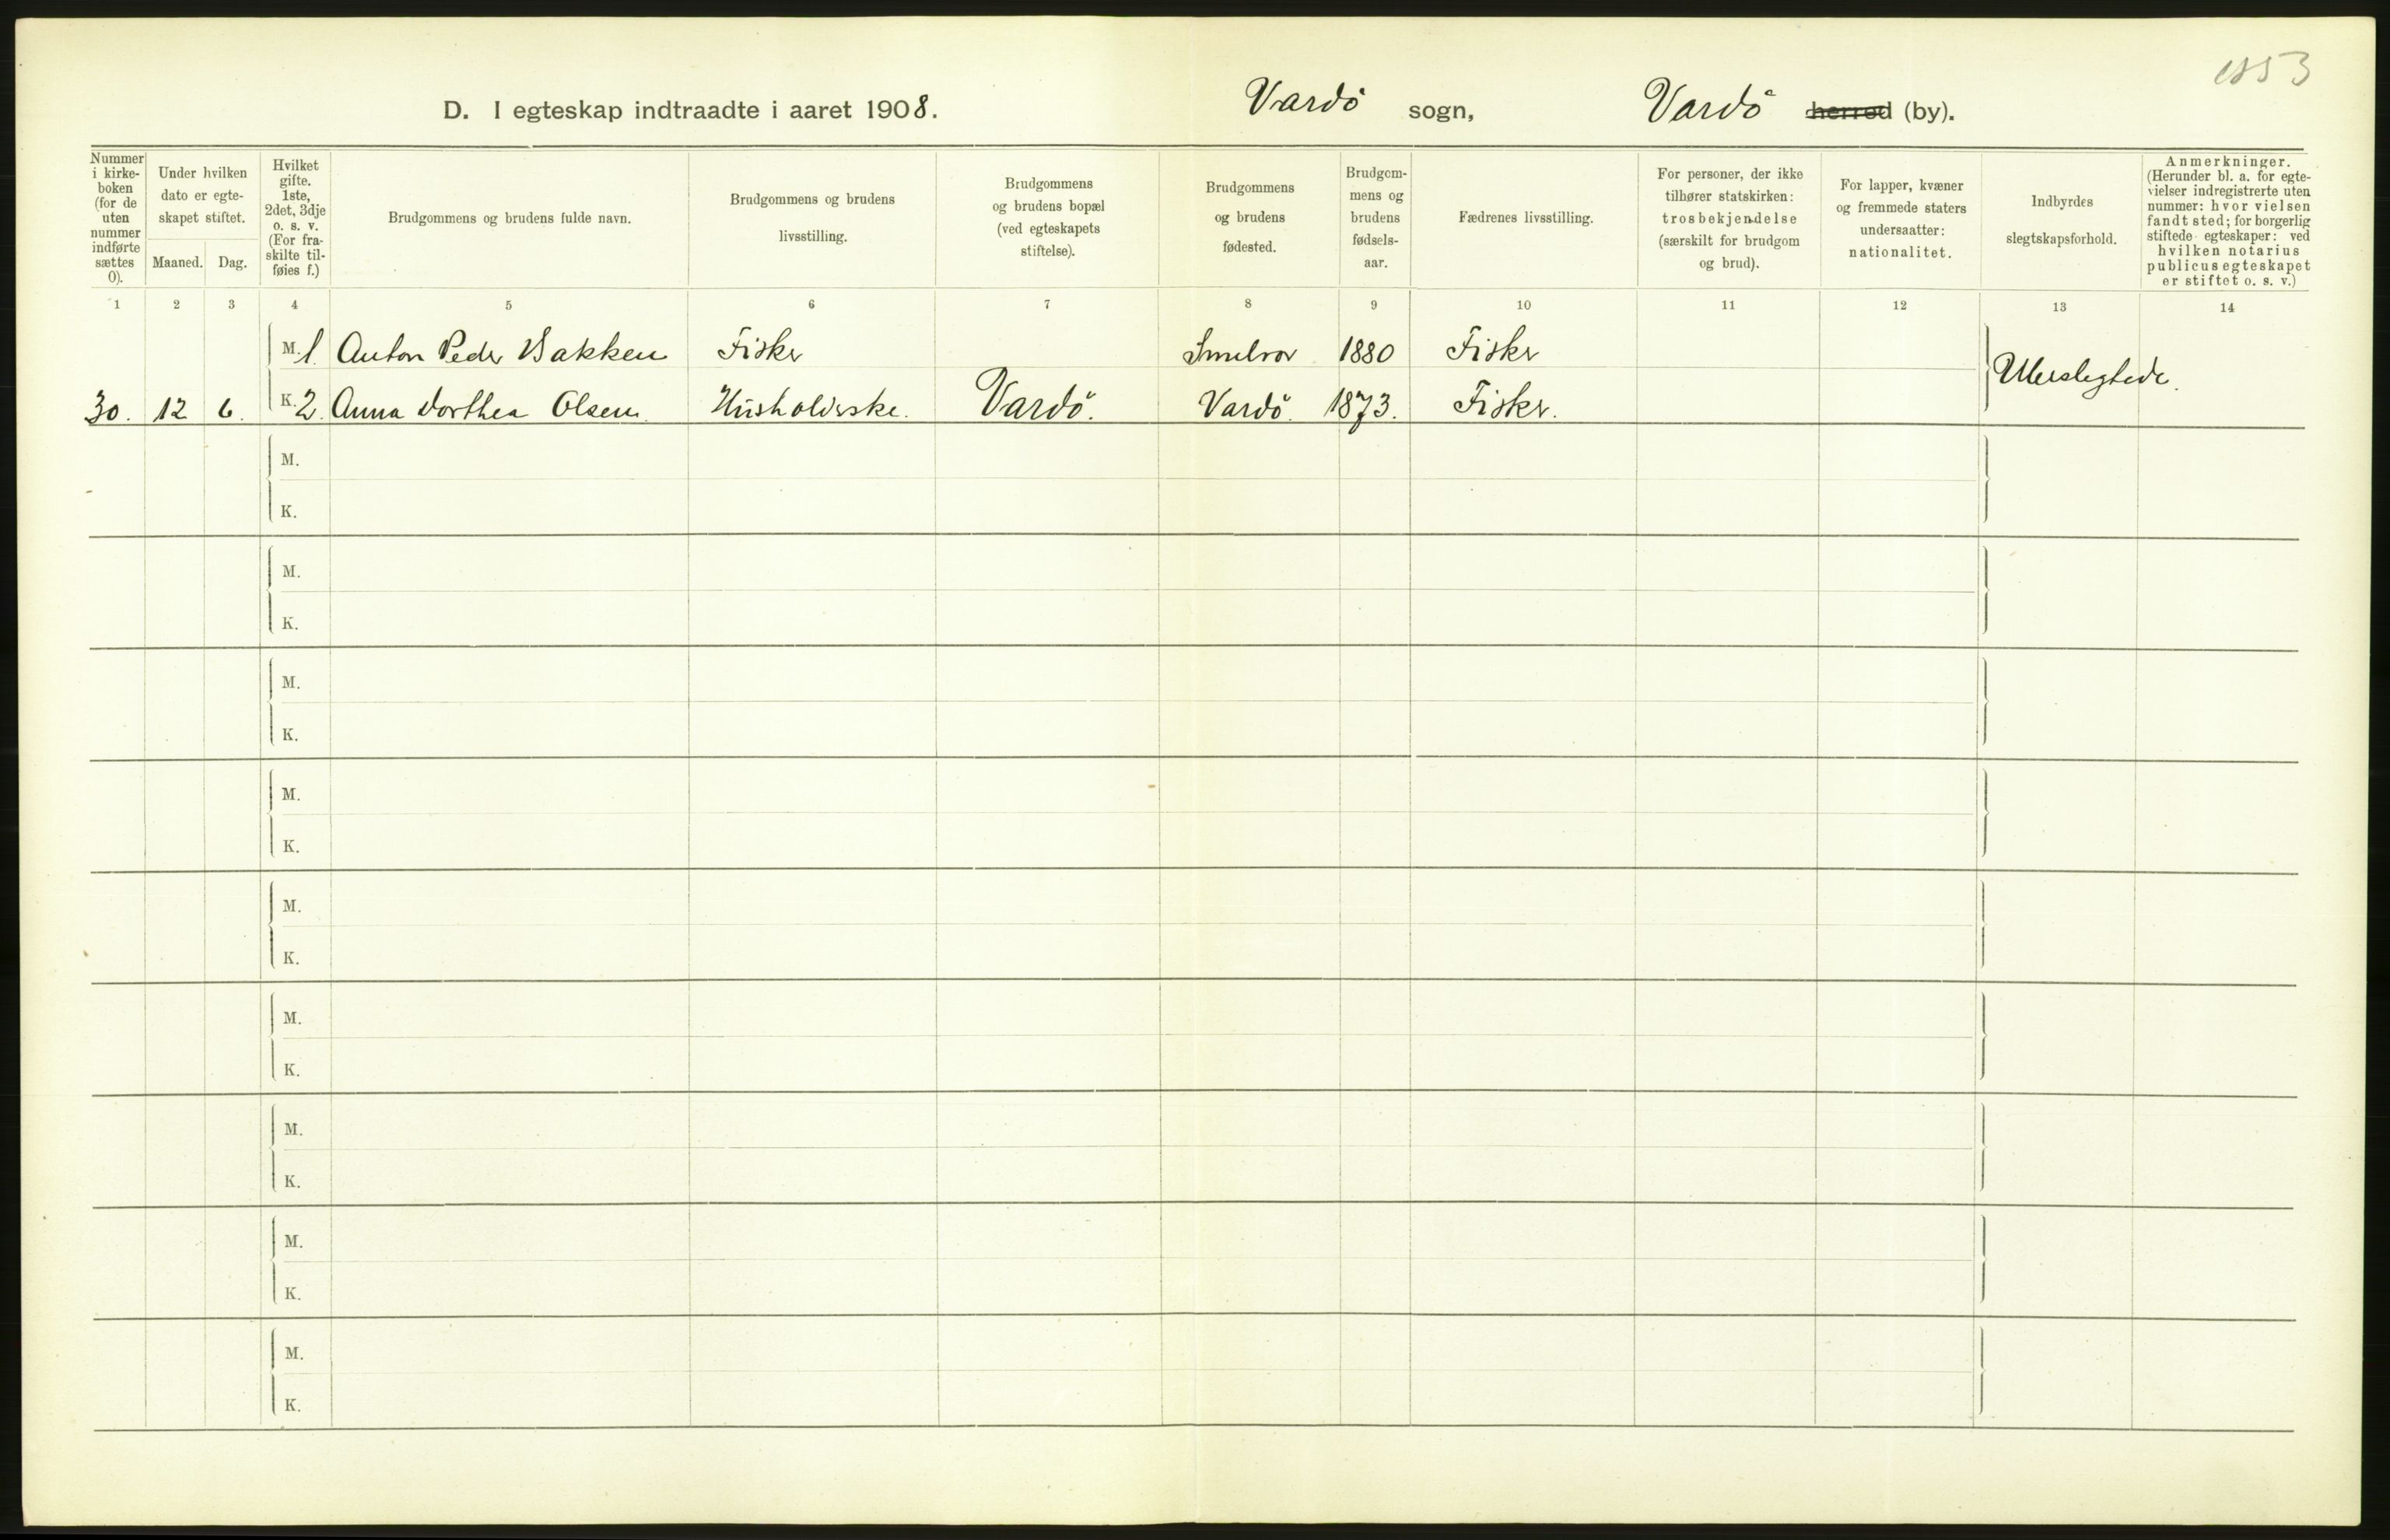 1853
D. I egteskap indtraadte i aaret 1908. Vardö sogn, Vardö herred (by).
Nummer i kirke-boken (for de uten nummer indførte sættes 0).
Under hvilken dato er egte-skapet stiftet.
Maaned. Dag.
Hvilket gifte. 1ste, 2det, 3dje o. s. v. (For fra-skilte til-føies f.)
Brudgommens og brudens fulde navn.
Brudgommens og brudens livsstilling.
Brudgommens og brudens bopæl (ved egteskapets stiftelse).
Brudgommens og brudens fødested.
Brudgom-mens og brudens fødsels-aar.
Fædrenes livsstilling.
For personer, der ikke tilhører statskirken: trosbekjendelse (særskilt for brudgom og brud).
For lapper, kvæner og fremmede staters undersaatter: nationalitet.
Indbyrdes slegtskapsforhold.
Anmerkninger. (Herunder bl. a. for egte-vielser indregistrerte uten nummer: hvor vielsen fandt sted; for borgerlig stiftede egteskaper: ved hvilken notarius publicus egteskapet er stiftet o. s. v.)
1 2 3 4 5 6 7 8 9 10 11 12 13 14
M. 1. Anton Peder Bakken Fisker Smelror 1880 Fisker
Ubeslegtede.
30. 12 6. K. 2. Anna Dorthea Olsen. Husholderske. Vardö. Vardö. 1873. Fisker.
M.
K.
M.
K.
M.
K.
M.
K.
M.
K.
M.
K.
M.
K.
M.
K.
M.
K.